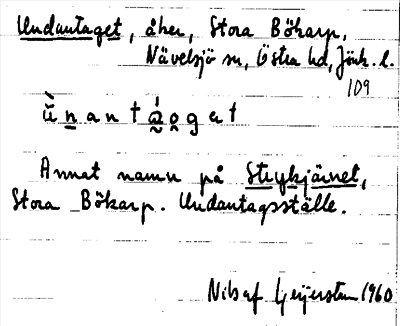 Undantaget, åker, Stora Bökarp,
Nävelsjö sn, Östra hd, Jönk. l.
109
ù̈n̠antá̰o̰get
Annat namn på Strykjärnet,
Stora Bökarp. Undantagsställe.
Nils af Geijerstam 1960